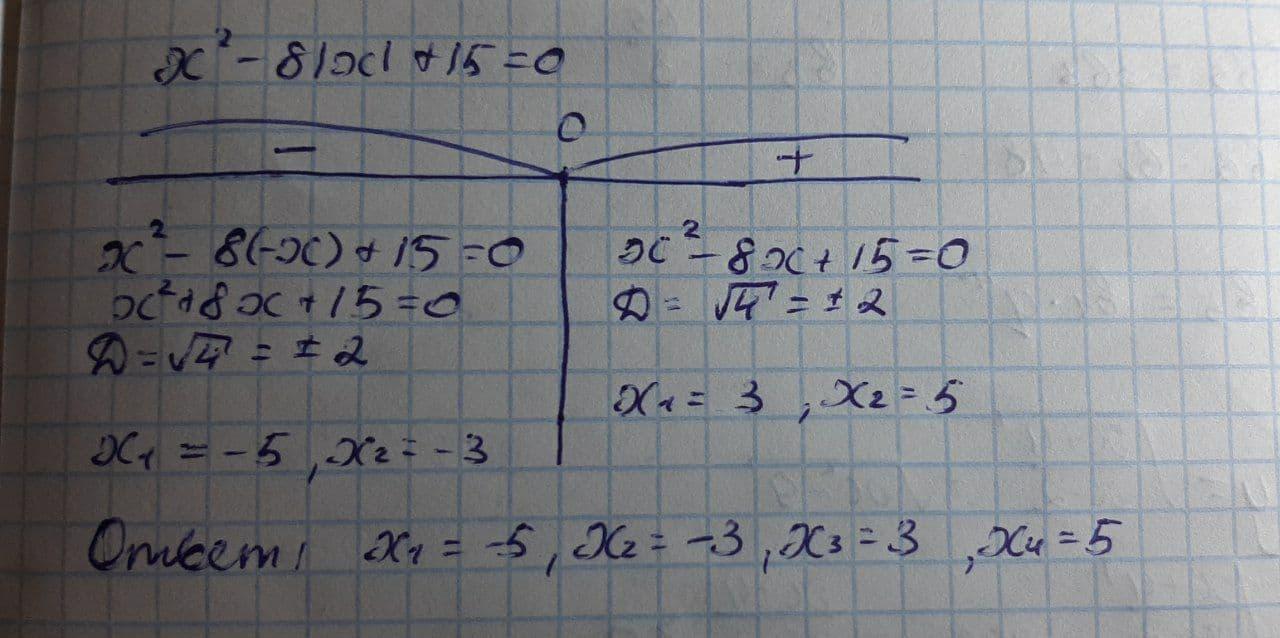 x² - 8|x| + 15 = 0
0
- +
x² - 8(-x) + 15 = 0
x² + 8x + 15 = 0
D = √4 = ± 2
x₁ = -5, x₂ = -3
x² - 8x + 15 = 0
D = √4 = ± 2
x₁ = 3, x₂ = 5
Ответ: x₁ = -5, x₂ = -3, x₃ = 3, x₄ = 5